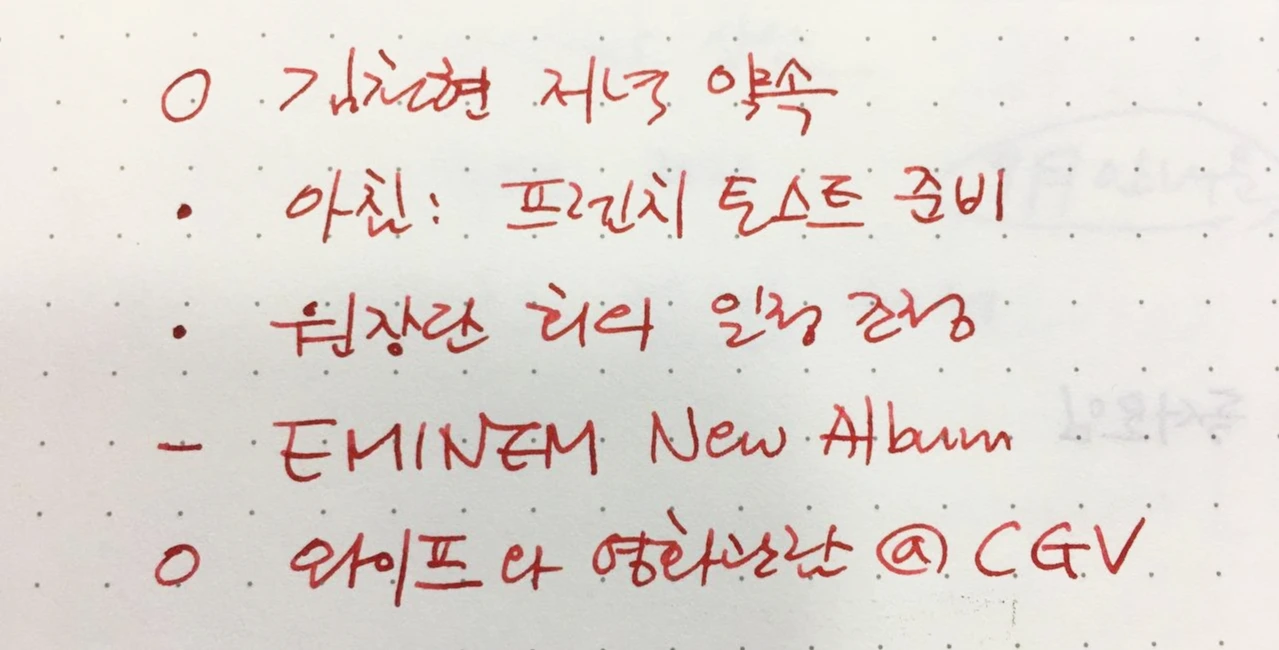 ○ 김천현 저녁 약속
• 아침: 프렌치 토스트 준비
• 원장단 회의 일정 조정
– EMINEM New Album
○ 와이프와 영화관람 @ CGV